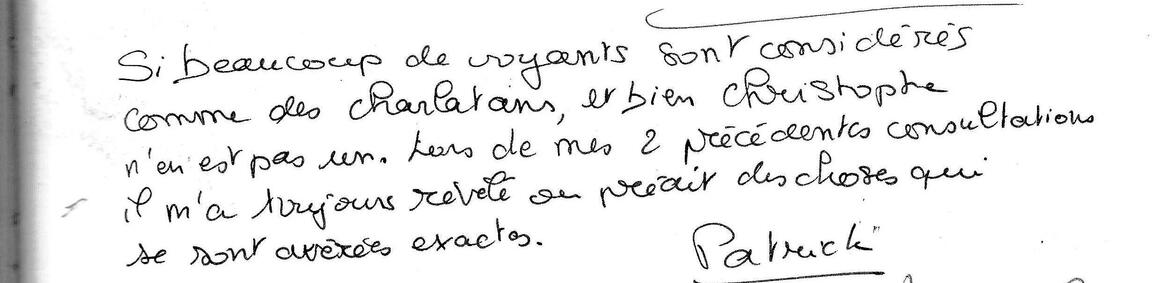 Si beaucoup de voyants sont considérés
comme des charlatans, et bien Christophe
n'en est pas un. Lors de mes 2 précédentes consultations
il m'a toujours révélé ou prédit des choses qui
se sont avérées exactes.
Patrick